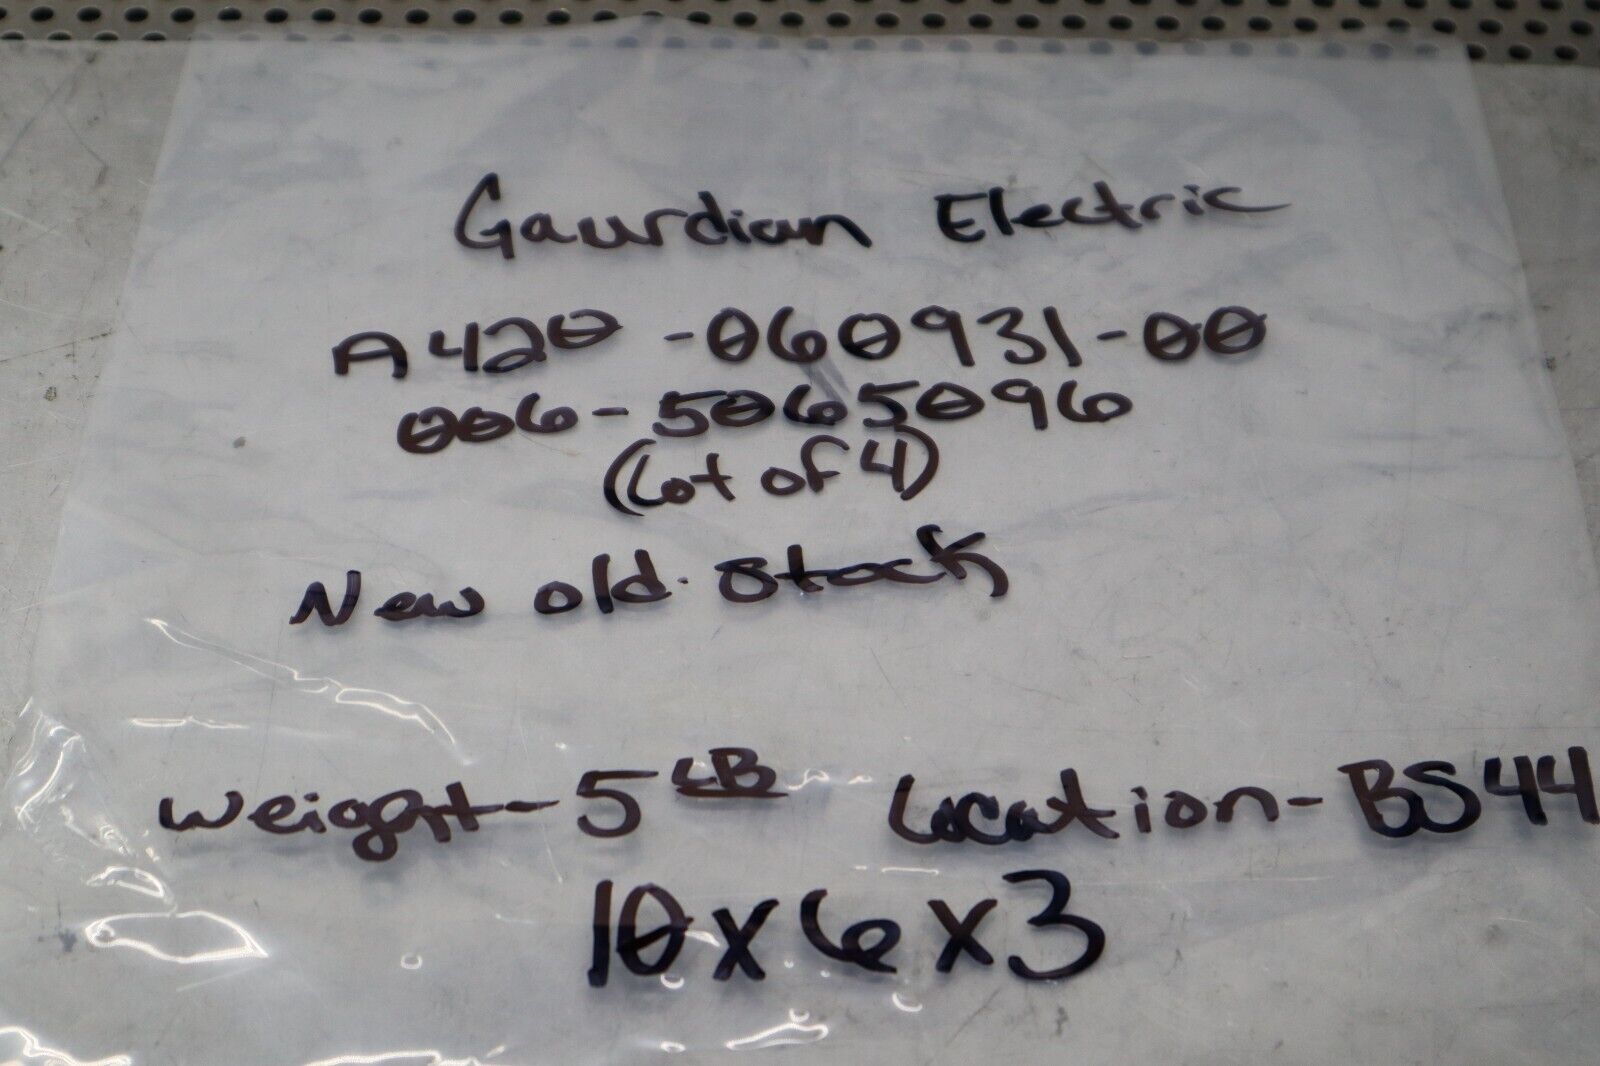 Gaurdian Electric
A420-060931-00
006-5065096
(Lot of 4)
New old stock
weight-5 LB Location-BS44
10x6x3